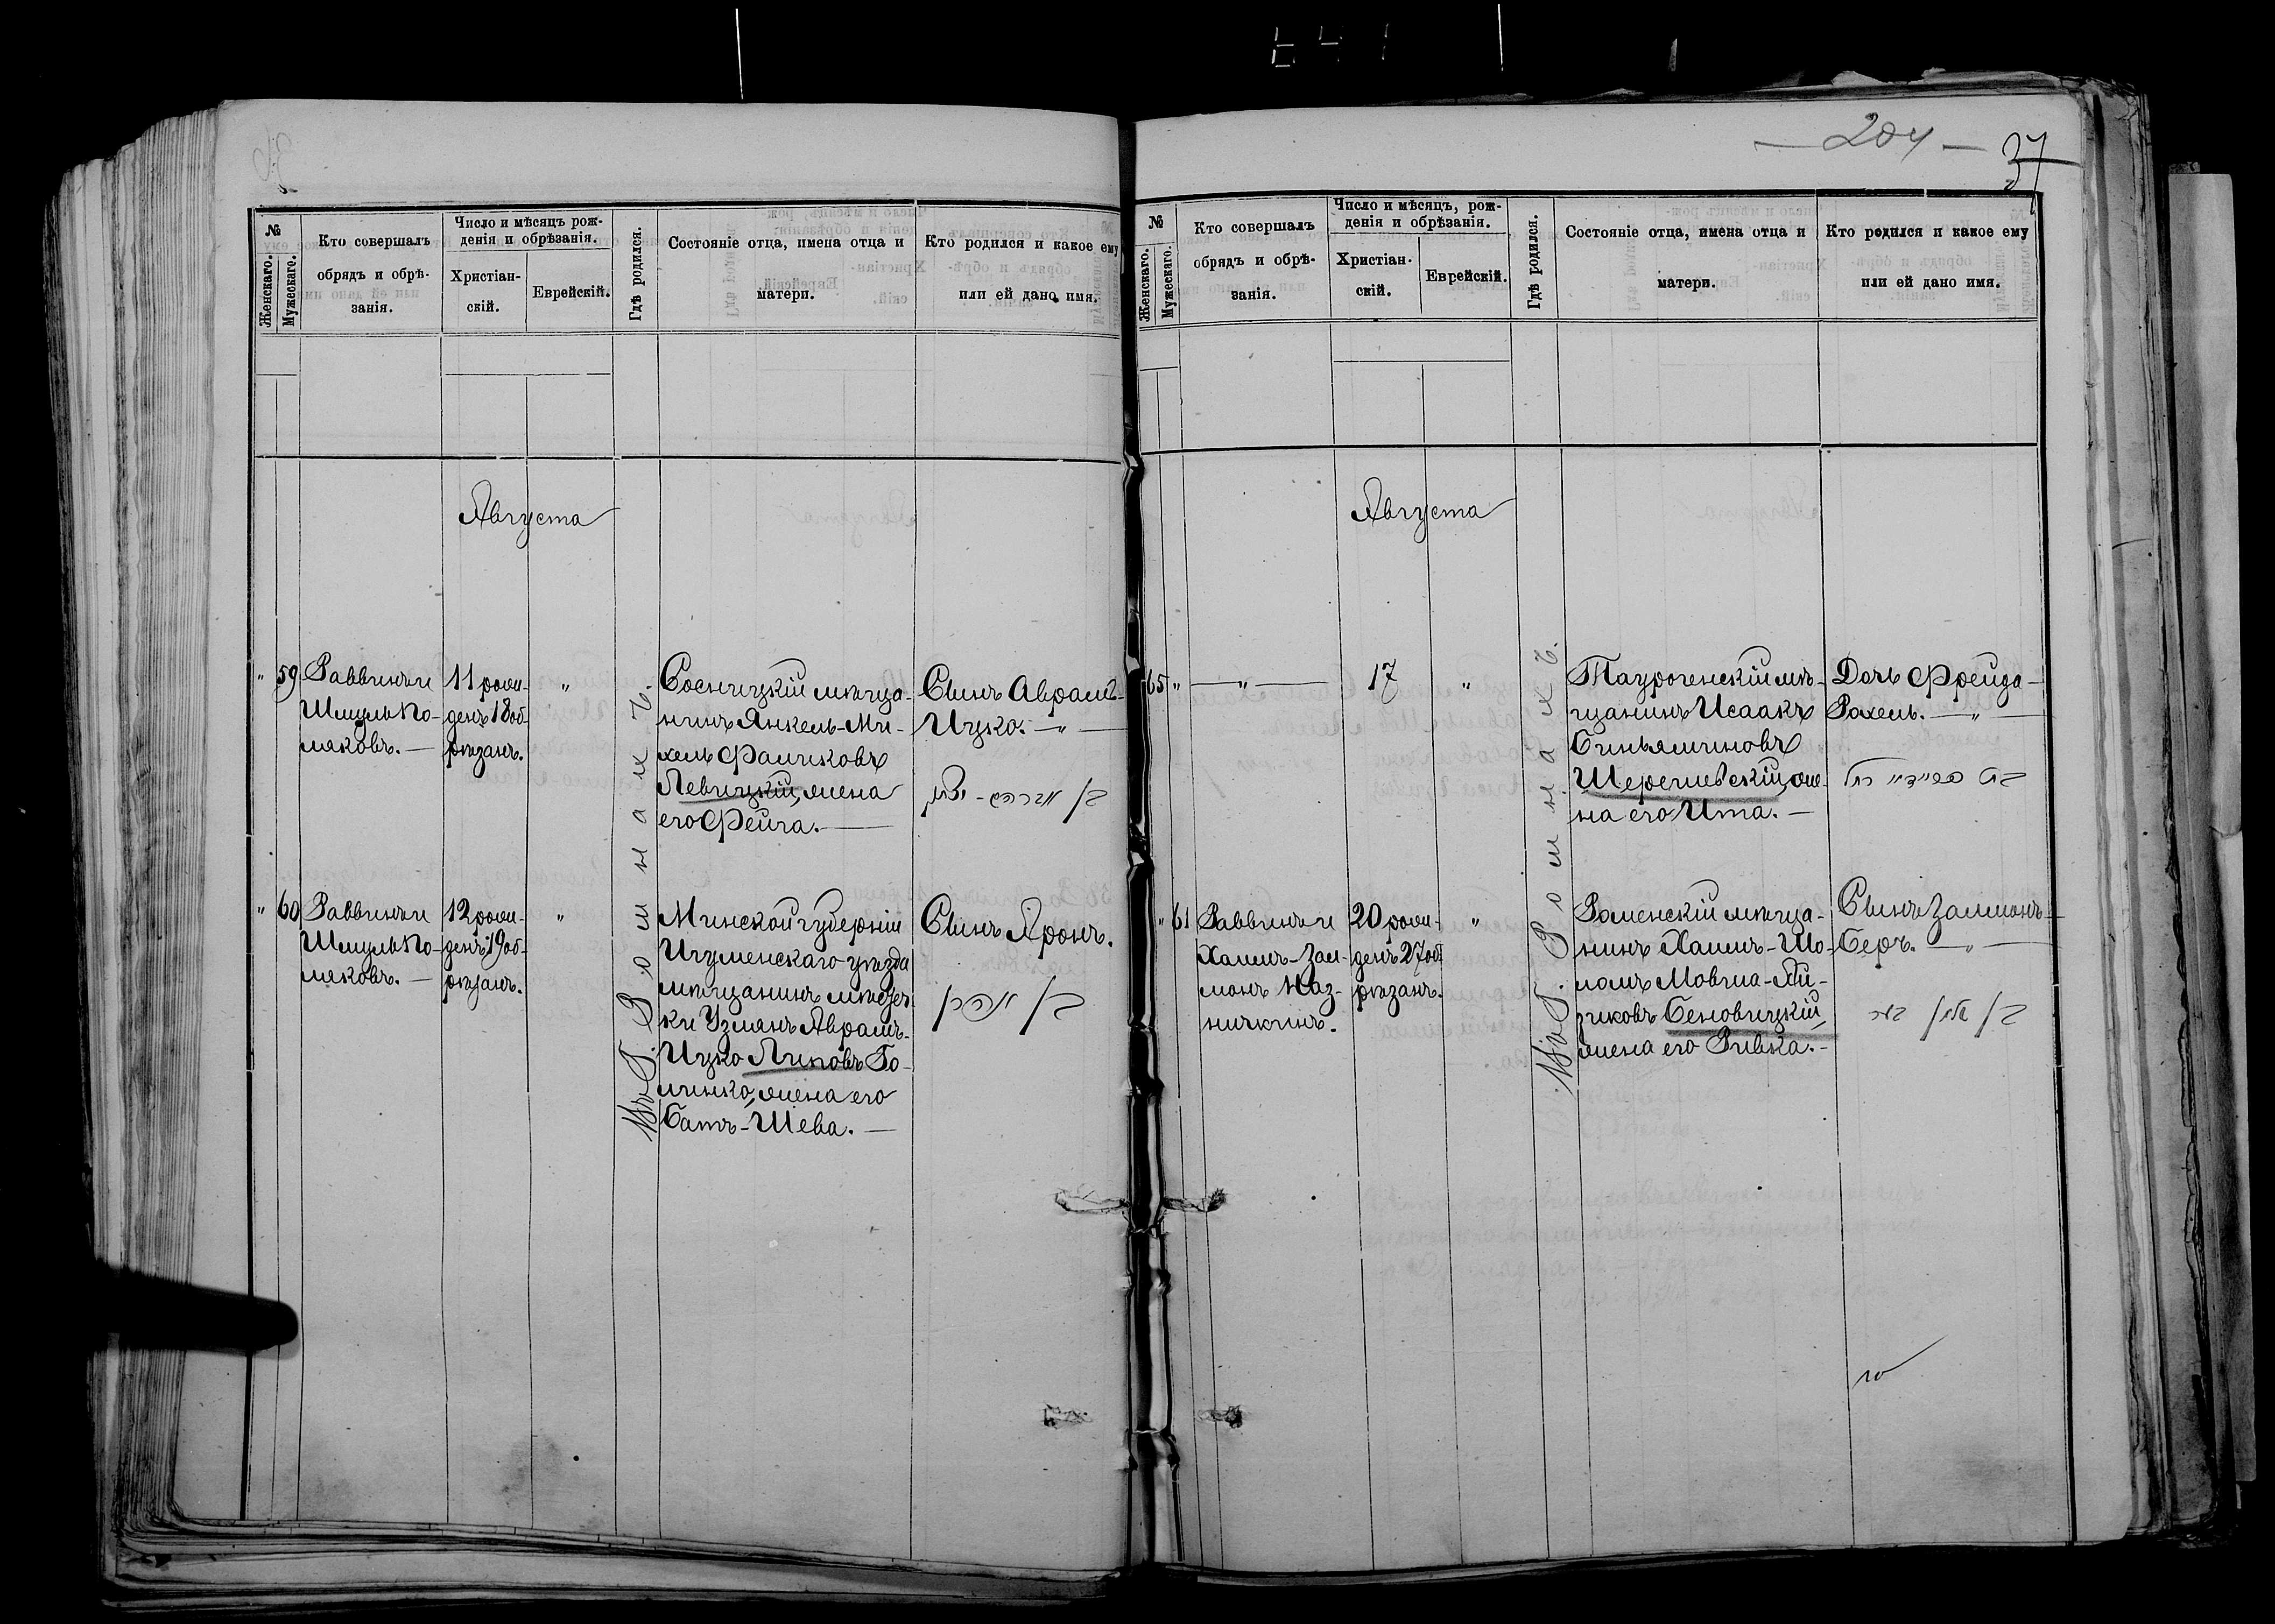 №
Женскаго.
Мужескаго.
Кто совершалъ
обрядъ и обрѣ-
занія.
Число и мѣсяцъ рож-
денія и обрѣзанія.
Христіан-
скій.
Еврейскій.
Гдѣ родился.
Состояніе отца, имена отца и
матери.
Кто родился и какое ему
или ей дано имя.
Августа
" 59
Раввинъ и
Шмуль По-
ляковъ. —
11 рож-
денъ 18 об-
рѣзанъ.
"
Въ Г. Ромнахъ.
Сосницкій мѣща-
нинъ Янкель-Ми-
хель Фаличковъ
Левицкій, жена
его Фейга. —
Сынъ Аврамъ-
Ицко. — " —
בן אברהם - יצחק
" 60
Раввинъ и
Шмуль По-
ляковъ. —
12 рож-
денъ 19 об-
рѣзанъ.
"
Минской губерніи
Игуменскаго уѣзда
мѣщанинъ мѣстеч-
ки Узлянъ Аврамъ-
Ицко Липовъ Го-
линко, жена его
Батъ-Шева. —
Сынъ Аронъ.
בן אהרן
— 204 —
37
№
Женскаго.
Мужескаго.
Кто совершалъ
обрядъ и обрѣ-
занія.
Число и мѣсяцъ, рож-
денія и обрѣзанія.
Христіан-
скій.
Еврейскій.
Гдѣ родился.
Состояніе отца, имена отца и
матери.
Кто родился и какое ему
или ей дано имя.
Августа
65 "
— " —
17
"
Въ Г. Ромнахъ.
Таурогенскій мѣ-
щанинъ Исаакъ
Биньяминовъ
Шерешевскій, же-
на его Ита. —
Дочь Фрейда-
Рахель. — " —
בת פריידי רחל
" 61
Раввинъ и
Хаимъ-Зал-
монъ Каз-
ничкинъ.
20 рож-
денъ 27 об-
рѣзанъ.
"
Роменскій мѣща-
нинъ Хаимъ-Шо-
ломъ Мовша-Ай-
зиковъ Беновицкій,
жена его Ривка. —
Сынъ Залмонъ-
Беръ. — " —
בן זלמן בער